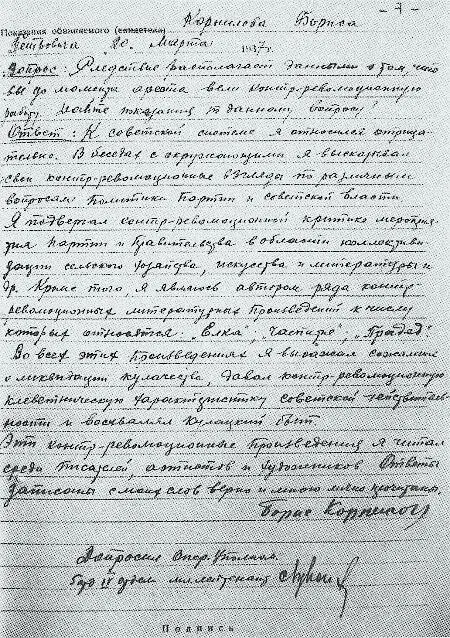 - 7 -
Корнилова Бориса
Показания обвиняемого (свидетеля)
Петровича 20. Марта 1937 г.
Вопрос: Следствие располагает данными о том, что
вы до момента ареста вели контр-революционную
работу. Дайте показания по данному вопросу
Ответ: К советской системе я относился отрица-
тельно. В беседах с окружающими я высказывал
свои контр-революционные взгляды по различным
вопросам политики партии и советской власти
Я подвергал контр-революционной критике мероприя-
тия партии и правительства в области коллективи-
зации сельского хозяйства, искусства и литературы и
др. Кроме того я являюсь автором ряда контр-
революционных литературных произведений к числу
которых относятся „Елка", „Чаепитие", „Прадед".
Во всех этих произведениях я выражал сожаление
о ликвидации кулачества, давал контр-революционную
клеветническую характеристику советской действитель-
ности и восхвалял кулацкий быт.
Эти контр-революционные произведения я читал
среди писателей, артистов и художников Ответы
записаны с моих слов верно и мною лично прочитаны.
Борис Корнилов
Допросил Опер. Уполном.
отдел мл. лейтенант
Подпись